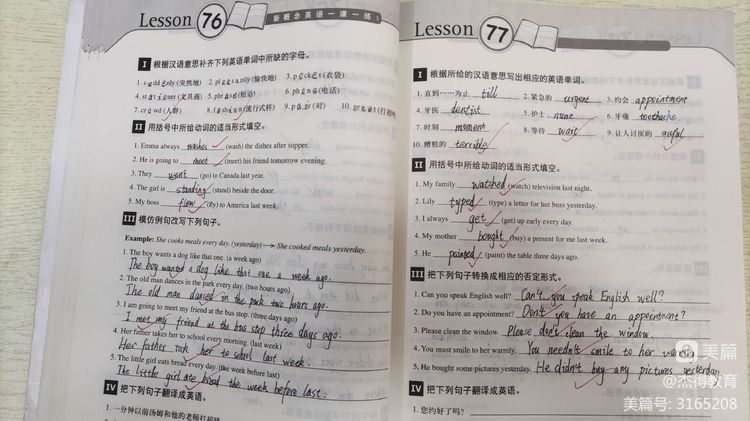 Lesson 76 新概念英语一课一练 1
I 根据汉语意思补齐下列英语单词中所缺的字母。
1. suddenly (突然地) 2. pleasantly (愉快地) 3. pockets (衣袋)
4. stationer (文具商) 5. phrase (短语) 6. phone (电话)
7. crowd (人群) 8. fashion (流行式样) 9. pair (对) 10. greet (打招呼)
II 用括号中所给动词的适当形式填空。
1. Emma always washes (wash) the dishes after supper.
2. He is going to meet (meet) his friend tomorrow evening.
3. They went (go) to Canada last year.
4. The girl is standing (stand) beside the door.
5. My boss flew (fly) to America last week.
III 模仿例句改写下列句子。
Example: She cooks meals every day. (yesterday) → She cooked meals yesterday.
1. The boy wants a dog like that one. (a week ago)
The boy wanted a dog like that one a week ago.
2. The old man dances in the park every day. (two hours ago)
The old man danced in the park two hours ago.
3. I am going to meet my friend at the bus stop. (three days ago)
I met my friend at the bus stop three days ago.
4. Her father takes her to school every morning. (last week)
Her father took her to school last week.
5. The little girl eats bread every day. (the week before last)
The little girl ate bread the week before last.
IV 把下列句子翻译成英语。
1. 一分钟以前汤姆和他的老师打招呼
Lesson 77
I 根据所给的汉语意思写出相应的英语单词。
1. 直到……为止 till 2. 紧急的 urgent 3. 约会 appointment
4. 牙医 dentist 5. 护士 nurse 6. 牙痛 toothache
7. 时刻 moment 8. 等待 wait 9. 让人讨厌的 awful
10. 糟糕的 terrible
II 用括号中所给动词的适当形式填空。
1. My family watched (watch) television last night.
2. Lily typed (type) a letter for her boss yesterday.
3. I always get (get) up early every day.
4. My mother bought (buy) a present for me last week.
5. He painted (paint) the table three days ago.
III 把下列句子转换成相应的否定形式。
1. Can you speak English well? Can't you speak English well?
2. Do you have an appointment? Don't you have an appointment?
3. Please clean the window. Please don't clean the window.
4. You must smile to her warmly. You needn't smile to her warmly.
5. He bought some pictures yesterday. He didn't buy any pictures yesterday.
IV 把下列句子翻译成英语。
1. 您约好了吗？
美篇
@杰得教育
美篇号: 3165208